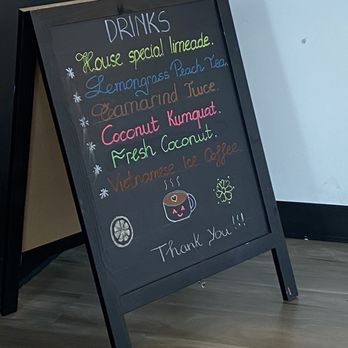 DRINKS
House special limeade.
Lemongrass Peach Tea.
Tamarind Juice.
Coconut Kumquat.
Fresh Coconut.
Vietnamese Ice Coffee.
Thank You!!!